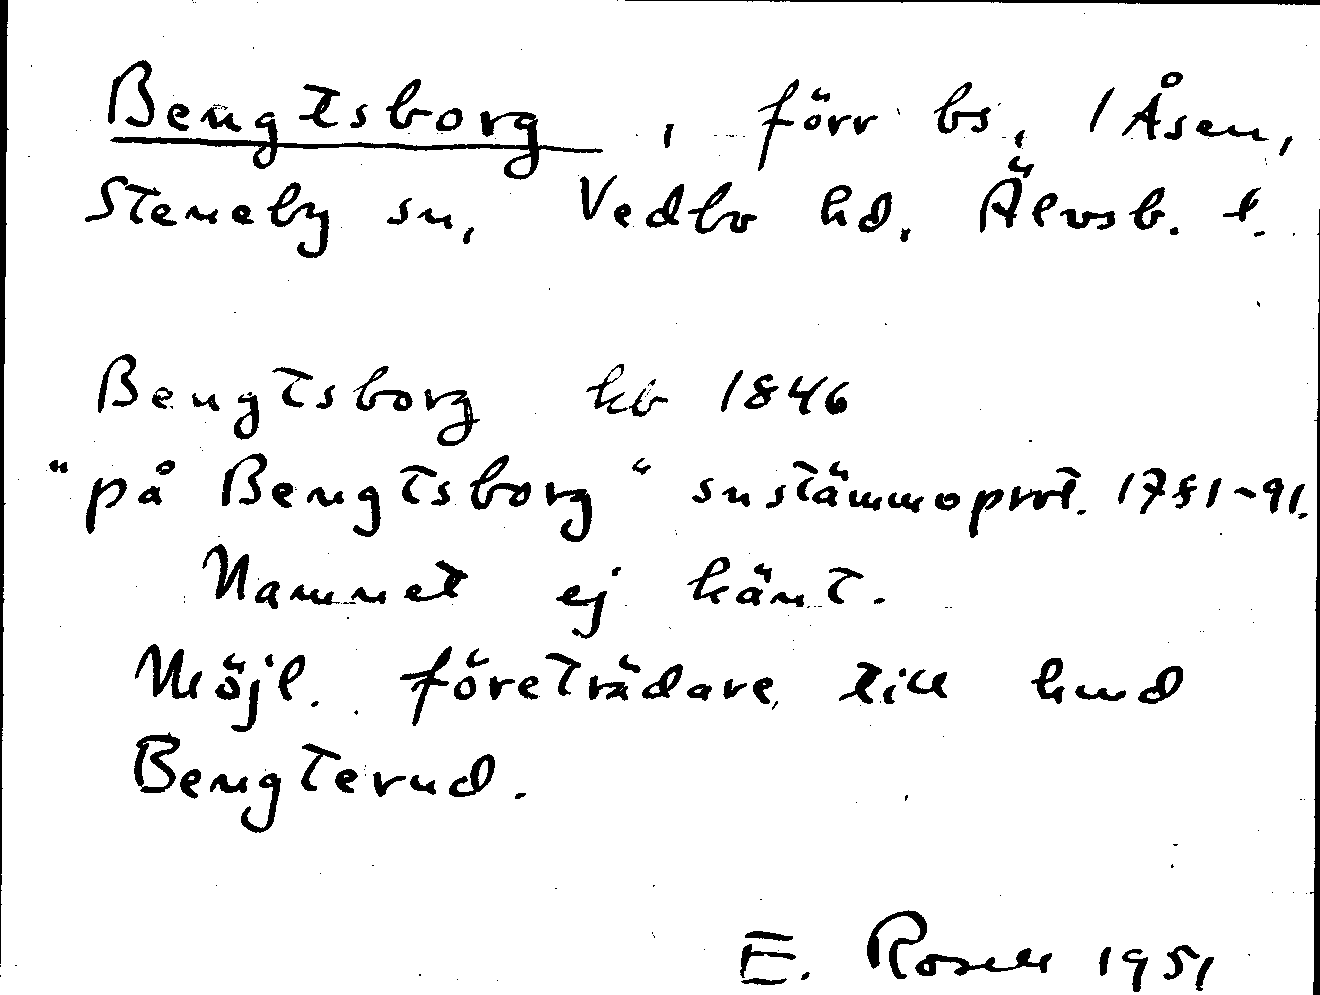 Bengtsborg, förr bs, 1 Åsen,
Steneby sn, Vedbo hd, Älvsb. l.
Bengtsborg hb 1846
"på Bengtsborg" snstämmoprot. 1781-91.
Namnet ej känt.
Möjl. företrädare till hmd
Bengterud.
E. Rosell 1951